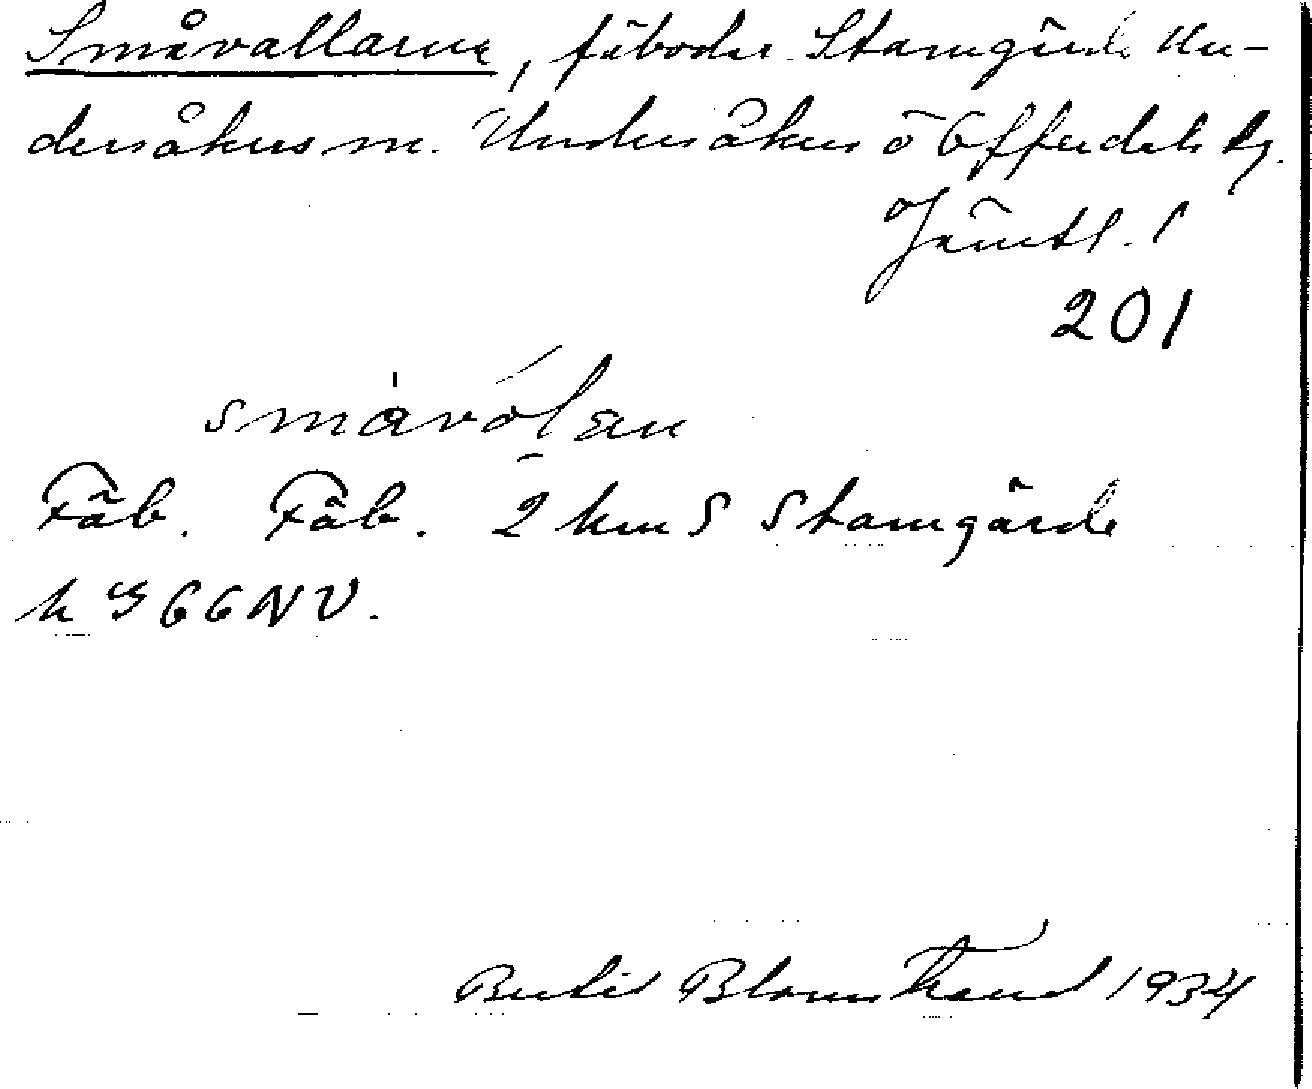 Småvallarna, fäboder Stamgärde Un-
dersåkers sn. Undersåkers o Offerdals tg.
Jämtl. l
201
småvólan
Fäb. Fäb. 2 km S Stamgärde
k S 66 NV.
Bertil Blomstrand 1934